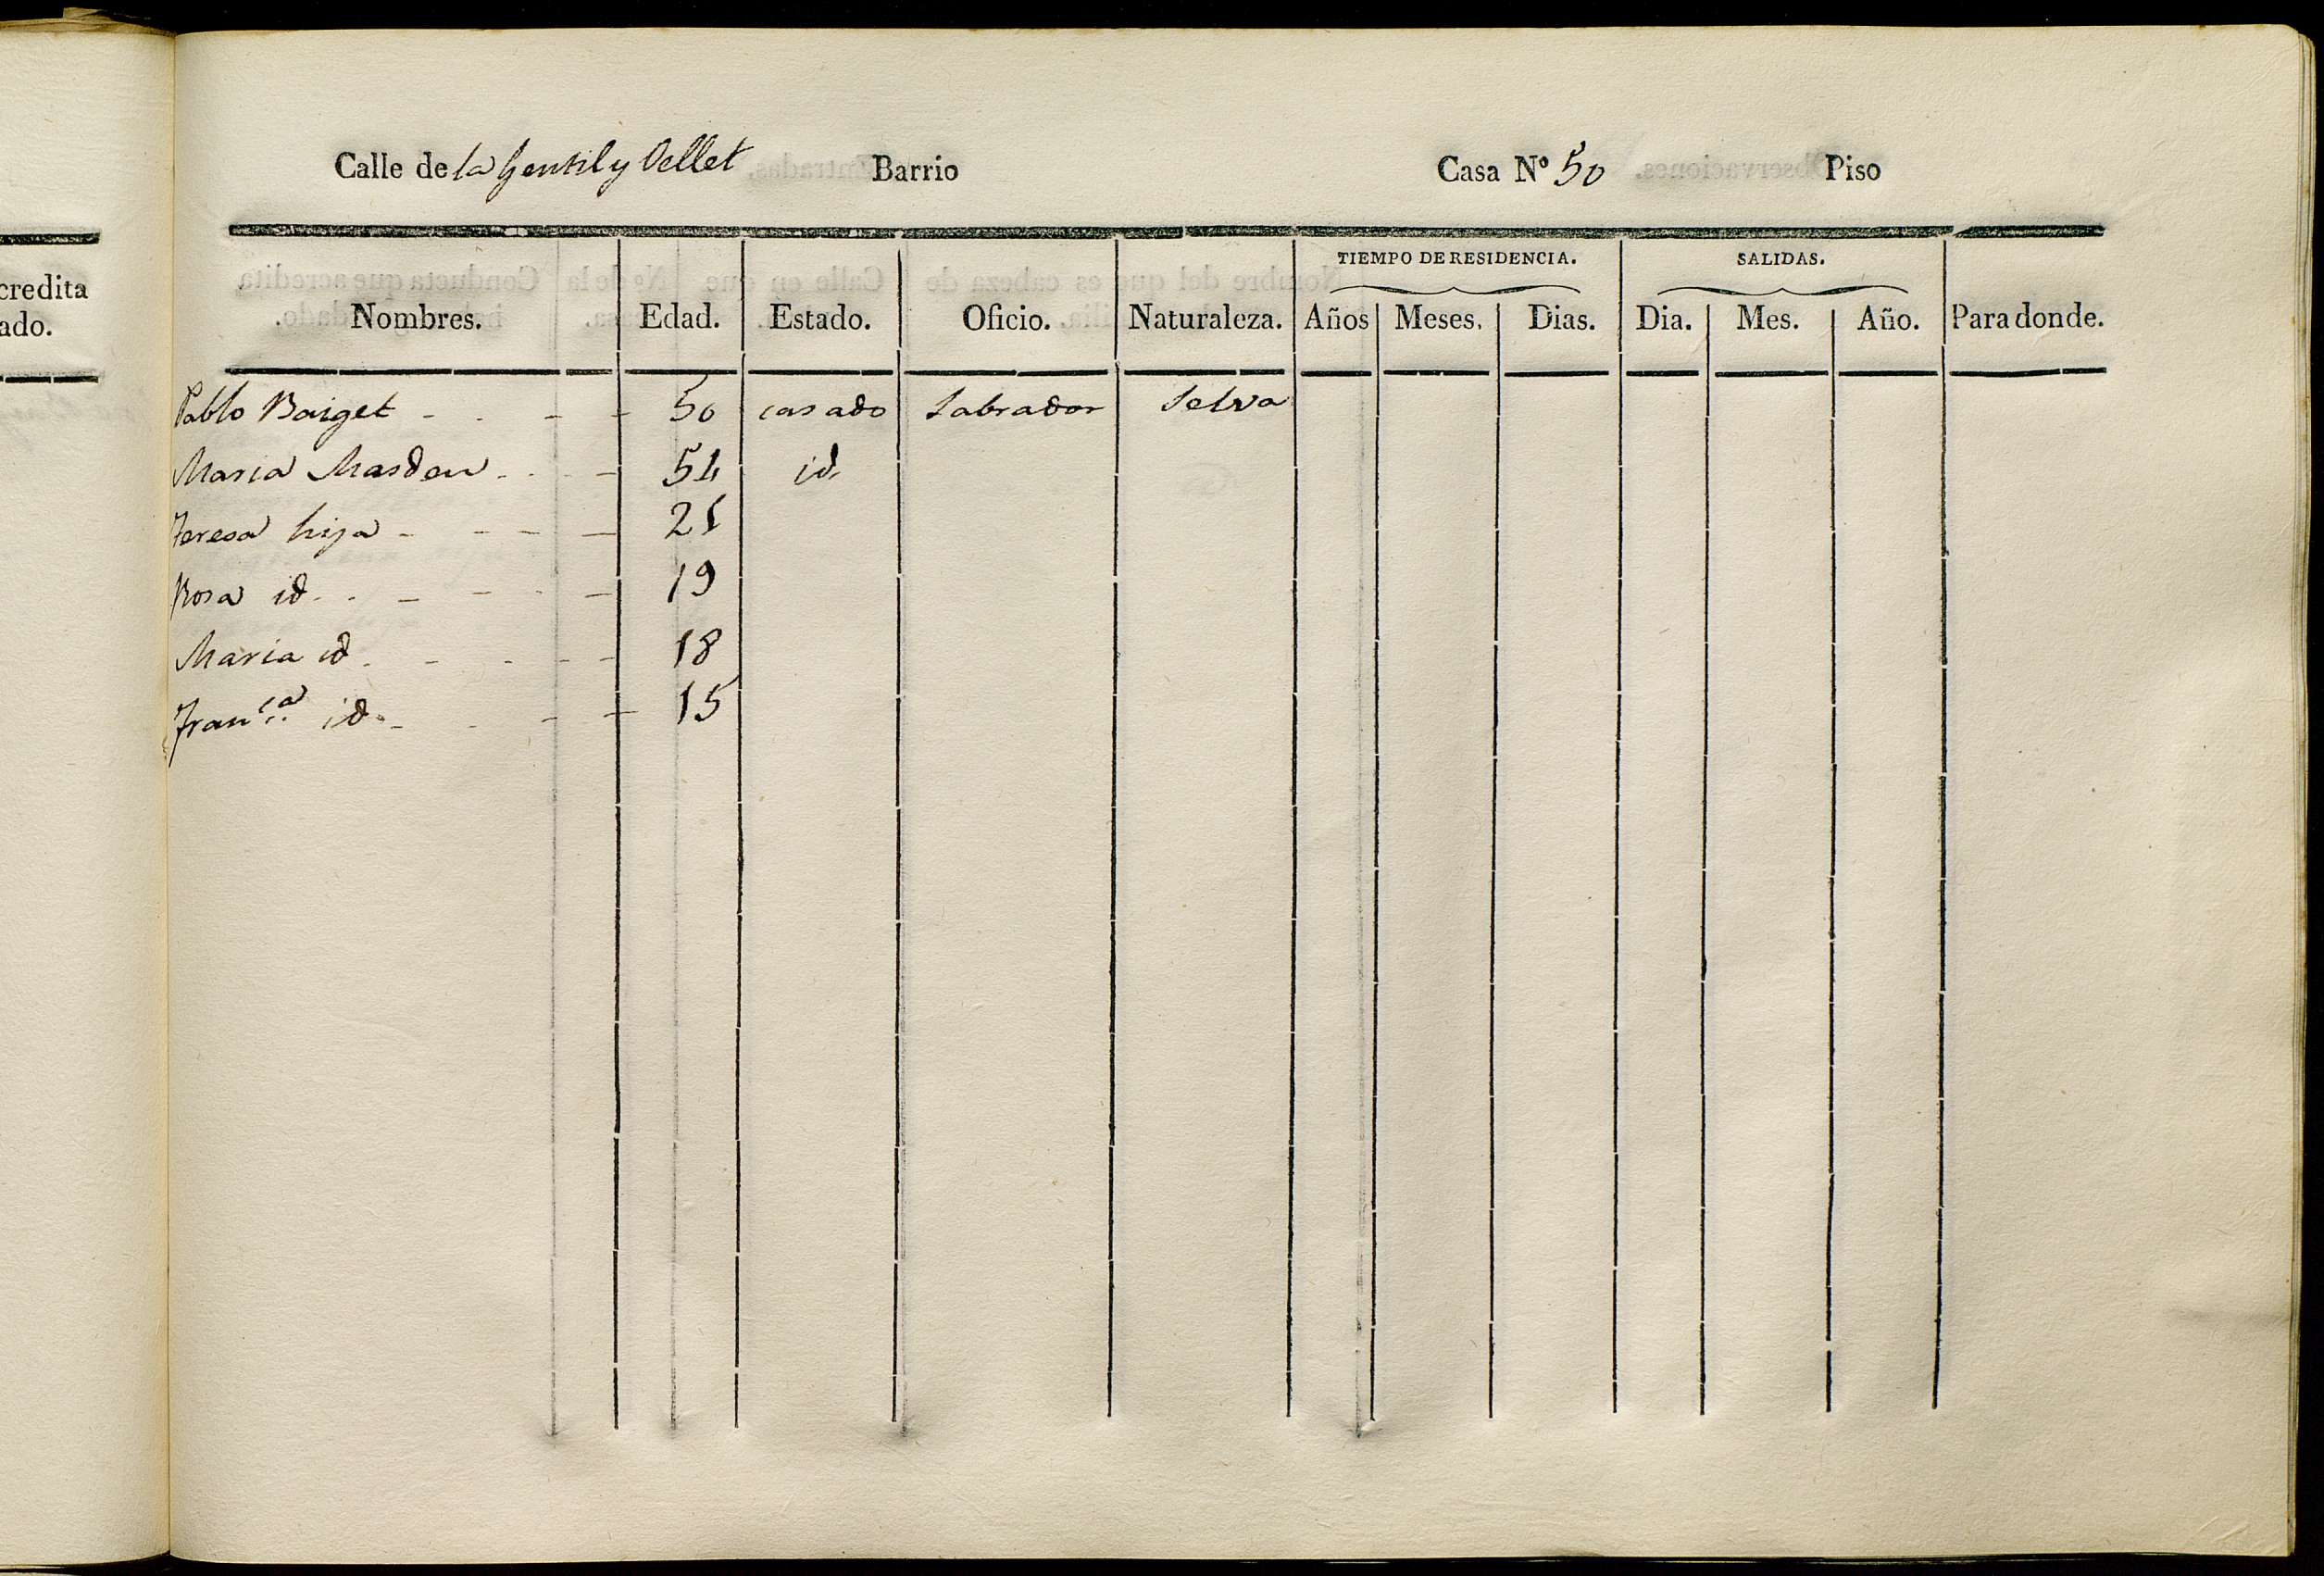 credita
ado.
Calle de la Gentil y Vellet Barrio Casa Nº 50 Piso
TIEMPO DE RESIDENCIA. SALIDAS.
Nombres. Edad. Estado. Oficio. Naturaleza. Años Meses. Dias. Dia. Mes. Año. Para donde.
Pablo Baiget - - - - 50 casado Labrador Selva
Maria Masdeu - - - 54 id.
Teresa hija - - - - 21
Rosa id. - - - - - 19
Maria id - - - - - 18
Fran.ca id. - - - - 15